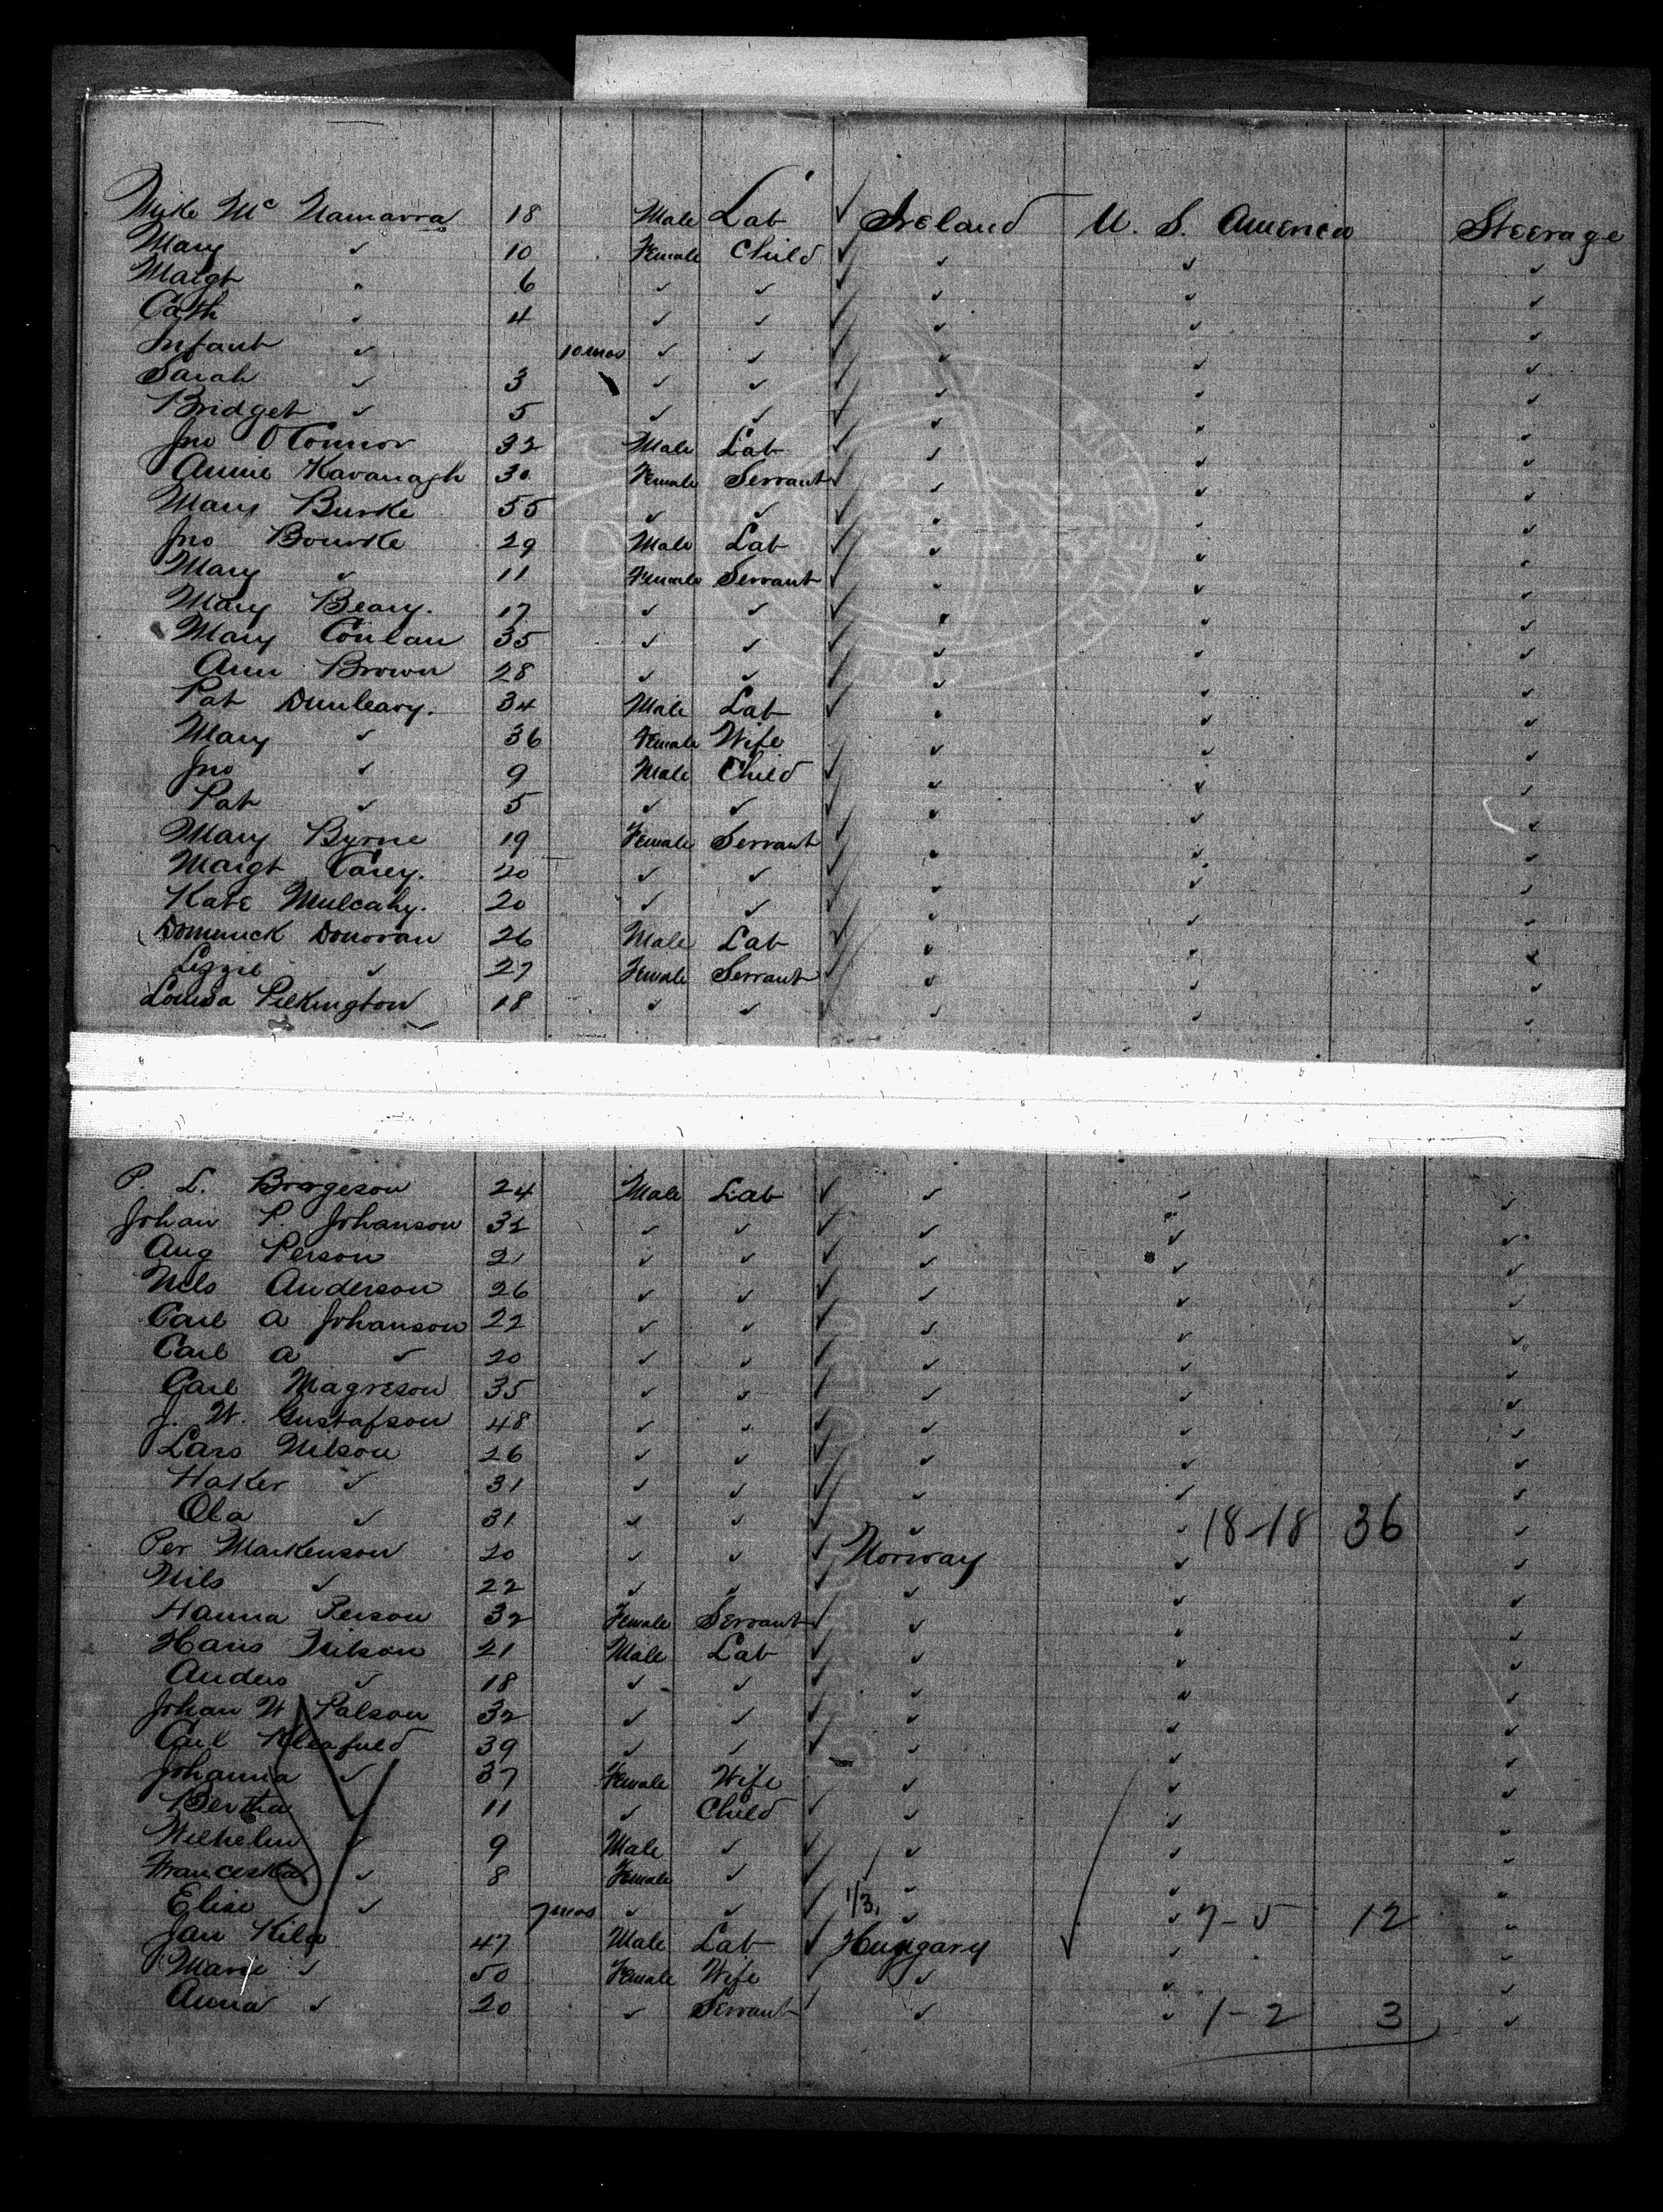 Mike Mc Namarra 18 Male Lab ✓ Ireland U. S. America Steerage
Mary ✓ 10 Female Child ✓ ✓ ✓ ✓
Maigt " 6 ✓ ✓ ✓ ✓ ✓ ✓
Cath ✓ 4 ✓ ✓ ✓ ✓ ✓ ✓
Infant ✓ 10 mos ✓ ✓ ✓ ✓ ✓ ✓
Sarah ✓ 3 ✓ ✓ ✓ ✓ ✓ ✓
Bridget ✓ 5 ✓ ✓ ✓ ✓ ✓ ✓
Jno O'Connor 32 Male Lab ✓ ✓ ✓ ✓
Annie Kavanagh 30 Female Servant ✓ ✓ ✓ ✓
Mary Burke 55 ✓ ✓ ✓ ✓ ✓ ✓
Jno Bourke 29 Male Lab ✓ ✓ ✓ ✓
Mary ✓ 11 Female Servant ✓ ✓ ✓ ✓
Mary Beary. 17 ✓ ✓ ✓ ✓ ✓ ✓
Mary Conlan 35 ✓ ✓ ✓ ✓ ✓ ✓
Ann Brown 28 ✓ ✓ ✓ ✓ ✓ ✓
Pat Dunleavy. 34 Male Lab ✓ ✓ ✓ ✓
Mary ✓ 36 Female Wife ✓ ✓ ✓
Jno ✓ 9 Male Child ✓ ✓ ✓ ✓
Pat ✓ 5 ✓ ✓ ✓ ✓ ✓ ✓
Mary Byrne 19 Female Servant ✓ ✓ ✓ ✓
Maigt Carey. 20 ✓ ✓ ✓ ✓ ✓ ✓
Kate Mulcahy. 20 ✓ ✓ ✓ ✓ ✓ ✓
Dominick Donovan 26 Male Lab ✓ ✓ ✓ ✓
Lizzie ✓ 27 Female Servant ✓ ✓ ✓ ✓
Louisa Pilkington 18 ✓ ✓ ✓ ✓ ✓ ✓
P. L. Borgeson 24 Male Lab ✓ ✓ ✓ ✓
Johan P. Johanson 32 ✓ ✓ ✓ ✓ ✓ ✓
Aug Person 21 ✓ ✓ ✓ ✓ ✓ ✓
Nels Anderson 26 ✓ ✓ ✓ ✓ ✓ ✓
Carl A Johanson 22 ✓ ✓ ✓ ✓ ✓ ✓
Carl A ✓ 20 ✓ ✓ ✓ ✓ ✓ ✓
Carl Magneson 35 ✓ ✓ ✓ ✓ ✓ ✓
J. W. Gustafson 48 ✓ ✓ ✓ ✓ ✓ ✓
Lars Nilson 26 ✓ ✓ ✓ ✓ ✓ ✓
Haker ✓ 31 ✓ ✓ ✓ ✓ ✓ ✓
Ola ✓ 31 ✓ ✓ ✓ ✓ ✓ 18-18 36 ✓
Per Markenson 20 ✓ ✓ ✓ Norway ✓ ✓
Nils ✓ 22 ✓ ✓ ✓ ✓ ✓ ✓
Hanna Person 32 Female Servant ✓ ✓ ✓ ✓
Hans 21 Male Lab ✓ ✓ ✓ ✓
Anders ✓ 18 ✓ ✓ ✓ ✓ ✓ ✓
Johan W Palson 32 ✓ ✓ ✓ ✓ ✓ ✓
Carl 39 ✓ ✓ ✓ ✓ ✓ ✓
Johanna ✓ 37 Female Wife ✓ ✓ ✓
Bertha ✓ 11 ✓ Child ✓ ✓ ✓ ✓
Wilhelm ✓ 9 Male ✓ ✓ ✓ ✓ ✓
Franceska ✓ 8 Female ✓ ✓ ✓ ✓ ✓
Elise ✓ 7 mos ✓ ✓ ✓ 1/3. ✓ ✓ 7-5 12 ✓
Jan Kila 47 Male Lab ✓ Hungary ✓ ✓
Marie ✓ 50 Female Wife ✓ ✓ ✓
Anna ✓ 20 ✓ Servant ✓ ✓ ✓ 1-2 3 ✓